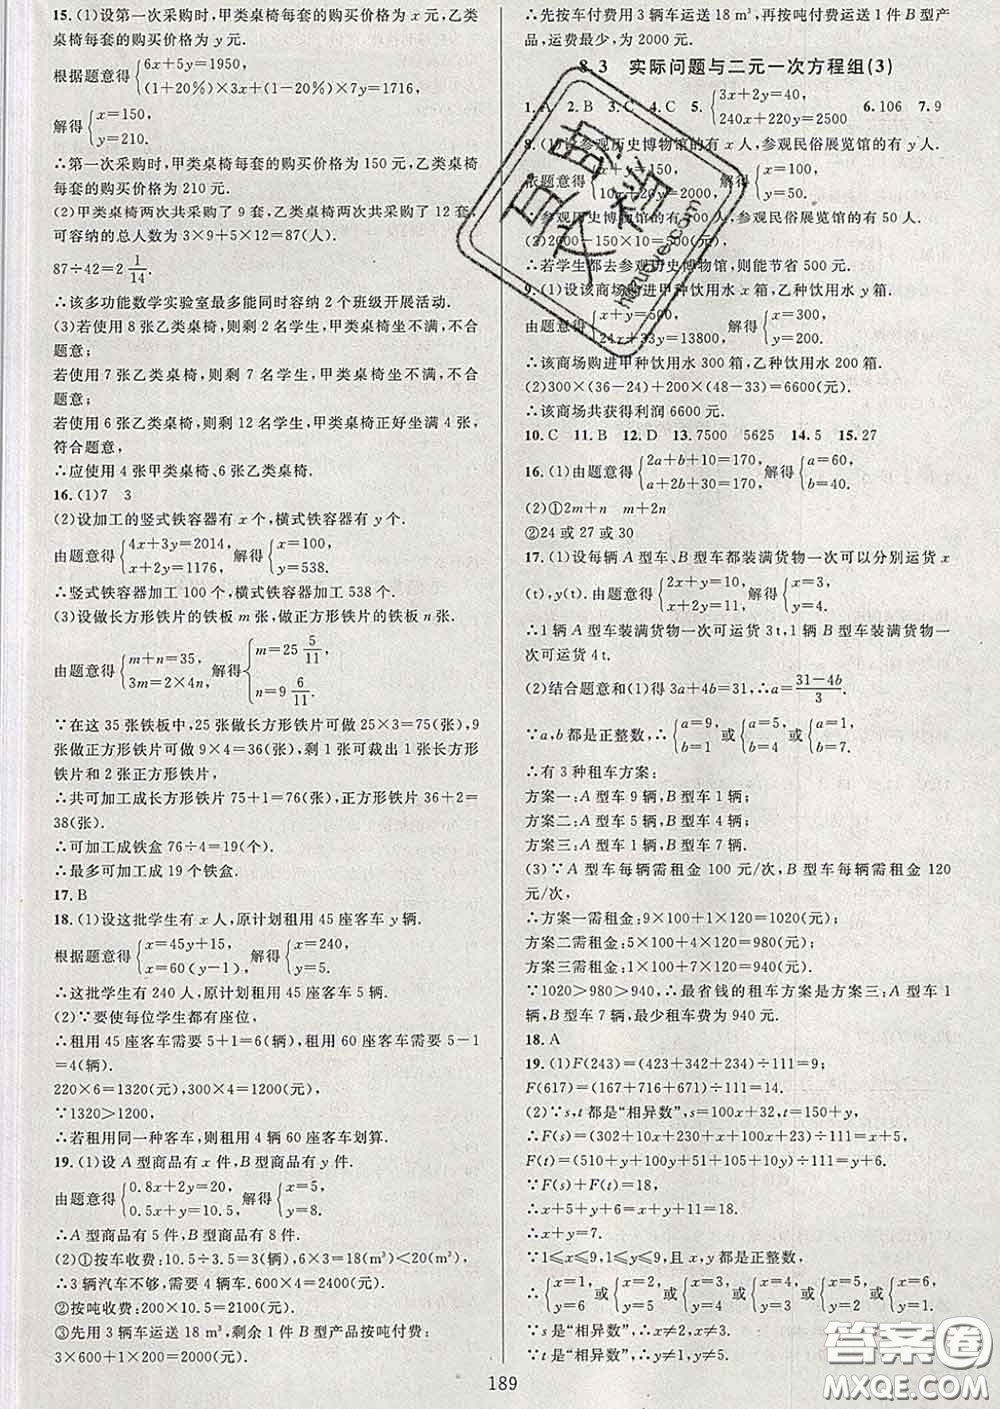 15.(1)设第一次采购时,甲类桌椅每套的购买价格为 x 元,乙类
桌椅每套的购买价格为 y 元.
根据题意得{6x+5y=1950,
(1+20%)×3x+(1-20%)×7y=1716,
解得{x=150,
y=210.
∴第一次采购时,甲类桌椅每套的购买价格为 150 元,乙类桌椅
每套的购买价格为 210 元.
(2)甲类桌椅两次共采购了 9 套,乙类桌椅两次共采购了 12 套,
可容纳的总人数为 3×9+5×12=87(人).
87÷42=2 1/14.
∴该多功能数学实验室最多能同时容纳 2 个班级开展活动.
(3)若使用 8 张乙类桌椅,则剩 2 名学生,甲类桌椅坐不满,不合
题意;
若使用 7 张乙类桌椅,则剩 7 名学生,甲类桌椅坐不满,不合
题意;
若使用 6 张乙类桌椅,则剩 12 名学生,甲类桌椅正好坐满 4 张,
符合题意,
∴应使用 4 张甲类桌椅、6 张乙类桌椅.
16.(1)7 3
(2)设加工的竖式铁容器有 x 个,横式铁容器有 y 个.
由题意得{4x+3y=2014,
x+2y=1176,
解得{x=100,
y=538.
∴竖式铁容器加工 100 个,横式铁容器加工 538 个.
(3)设做长方形铁片的铁板 m 张,做正方形铁片的铁板 n 张.
由题意得{m+n=35,
3m=2×4n,
解得{m=25 5/11,
n=9 6/11.
∵在这 35 张铁板中,25 张做长方形铁片可做 25×3=75(张),9
张做正方形铁片可做 9×4=36(张),剩 1 张可裁出 1 张长方形
铁片和 2 张正方形铁片,
∴共可加工成长方形铁片 75+1=76(张),正方形铁片 36+2=
38(张).
∴可加工成铁盒 76÷4=19(个).
∴最多可加工成 19 个铁盒.
17.B
18.(1)设这批学生有 x 人,原计划租用 45 座客车 y 辆.
根据题意得{x=45y+15,
x=60(y-1),
解得{x=240,
y=5.
∴这批学生有 240 人,原计划租用 45 座客车 5 辆.
(2)∵要使每位学生都有座位,
∴租用 45 座客车需要 5+1=6(辆),租用 60 座客车需要 5-1
=4(辆).
220×6=1320(元),300×4=1200(元),
∵1320>1200,
∴若租用同一种客车,则租用 4 辆 60 座客车划算.
19.(1)设 A 型商品有 x 件,B 型商品有 y 件.
由题意得{0.8x+2y=20,
0.5x+y=10.5,
解得{x=5,
y=8.
∴A 型商品有 5 件,B 型商品有 8 件.
(2)①按车收费:10.5÷3.5=3(辆),6×3=18(m³)<20(m³),
∴3 辆汽车不够,需要 4 辆车.600×4=2400(元).
②按吨收费:200×10.5=2100(元).
③先用 3 辆车运送 18 m³,剩余 1 件 B 型产品按吨付费:
3×600+1×200=2000(元).
∴先按车付费用 3 辆车运送 18 m³,再按吨付费运送 1 件 B 型产
品,运费最少,为 2000 元.
8.3 实际问题与二元一次方程组(3)
1.A 2.B 3.C 4.C 5.{3x+2y=40,
240x+220y=2500
6.106 7.9
8.(1)设参观历史博物馆的有 x 人,参观民俗展览馆的有 y 人.
依题意得{x+y=150,
10x+20y=2000,
解得{x=100,
y=50.
∴参观历史博物馆的有 100 人,参观民俗展览馆的有 50 人.
(2)2000-150×10=500(元).
∴若学生都去参观历史博物馆,则能节省 500 元.
9.(1)设该商场购进甲种饮用水 x 箱,乙种饮用水 y 箱.
由题意得{x+y=500,
24x+33y=13800,
解得{x=300,
y=200.
∴该商场购进甲种饮用水 300 箱,乙种饮用水 200 箱.
(2)300×(36-24)+200×(48-33)=6600(元).
∴该商场共获得利润 6600 元.
10.C 11.B 12.D 13.7500 5625 14.5 15.27
16.(1)由题意得{2a+b+10=170,
a+2b+30=170,
解得{a=60,
b=40.
(2)①2m+n m+2n
②24 或 27 或 30
17.(1)设每辆 A 型车、B 型车都装满货物一次可以分别运货 x
(t),y(t).由题意得{2x+y=10,
x+2y=11,
解得{x=3,
y=4.
∴1 辆 A 型车装满货物一次可运货 3 t,1 辆 B 型车装满货物一
次可运货 4 t.
(2)结合题意和(1)得 3a+4b=31,∴a=(31-4b)/3.
∵a,b 都是正整数,∴{a=9,
b=1
或{a=5,
b=4
或{a=1,
b=7.
∴有 3 种租车方案:
方案一:A 型车 9 辆,B 型车 1 辆;
方案二:A 型车 5 辆,B 型车 4 辆;
方案三:A 型车 1 辆,B 型车 7 辆.
(3)∵A 型车每辆需租金 100 元/次,B 型车每辆需租金 120
元/次,
∴方案一需租金:9×100+1×120=1020(元);
方案二需租金:5×100+4×120=980(元);
方案三需租金:1×100+7×120=940(元).
∵1020>980>940,∴最省钱的租车方案是方案三:A 型车 1
辆,B 型车 7 辆,最少租车费为 940 元.
18.A
19.(1)F(243)=(423+342+234)÷111=9;
F(617)=(167+716+671)÷111=14.
(2)∵s,t 都是“相异数”,s=100x+32,t=150+y,
∴F(s)=(302+10x+230+x+100x+23)÷111=x+5,
F(t)=(510+y+100y+51+105+10y)÷111=y+6.
∵F(s)+F(t)=18,
∴x+5+y+6=x+y+11=18.
∴x+y=7.
∵1≤x≤9,1≤y≤9,且 x,y 都是正整数,
∴{x=1,
y=6
或{x=2,
y=5
或{x=3,
y=4
或{x=4,
y=3
或{x=5,
y=2
或{x=6,
y=1.
∵s 是“相异数”,∴x≠2,x≠3.
∵t 是“相异数”,∴y≠1,y≠5.
189
答案圈
MXQE.COM